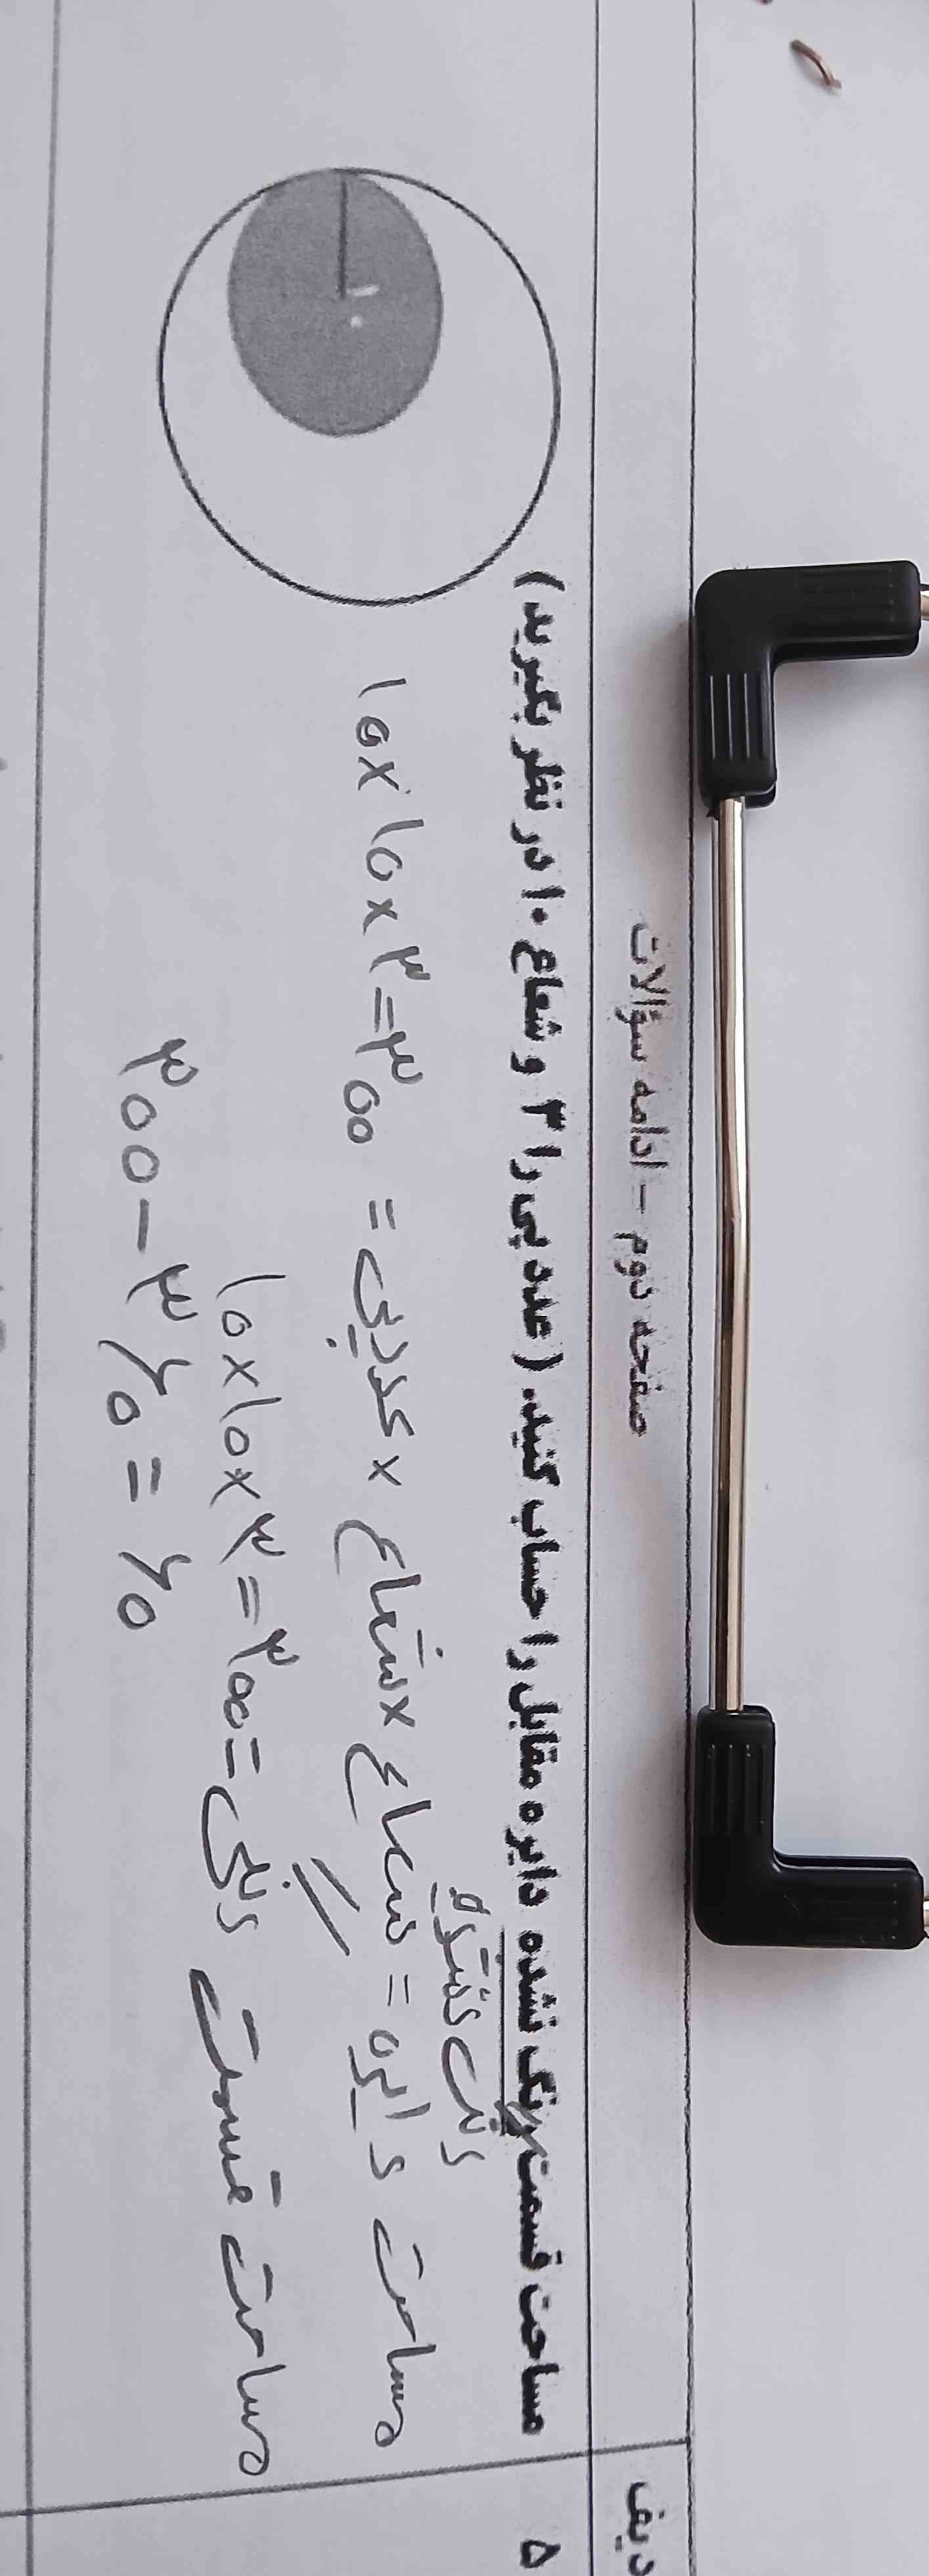 صفحه دوم - ادامه سؤالات
ردیف
۵
مساحت قسمت رنگ نشده دایره مقابل را حساب کنید. (عدد پی را ۳ و شعاع ۱۰ در نظر بگیرید)
۱۰
رنگ نشده
مساحت دایره = شعاع × شعاع × عدد پی = ۱۰×۱۰×۳=۳۰۰
مساحت قسمت رنگی = ۱۰×۱۰×۳=۳۰۰
۳۰۰-۳۰۰=۰